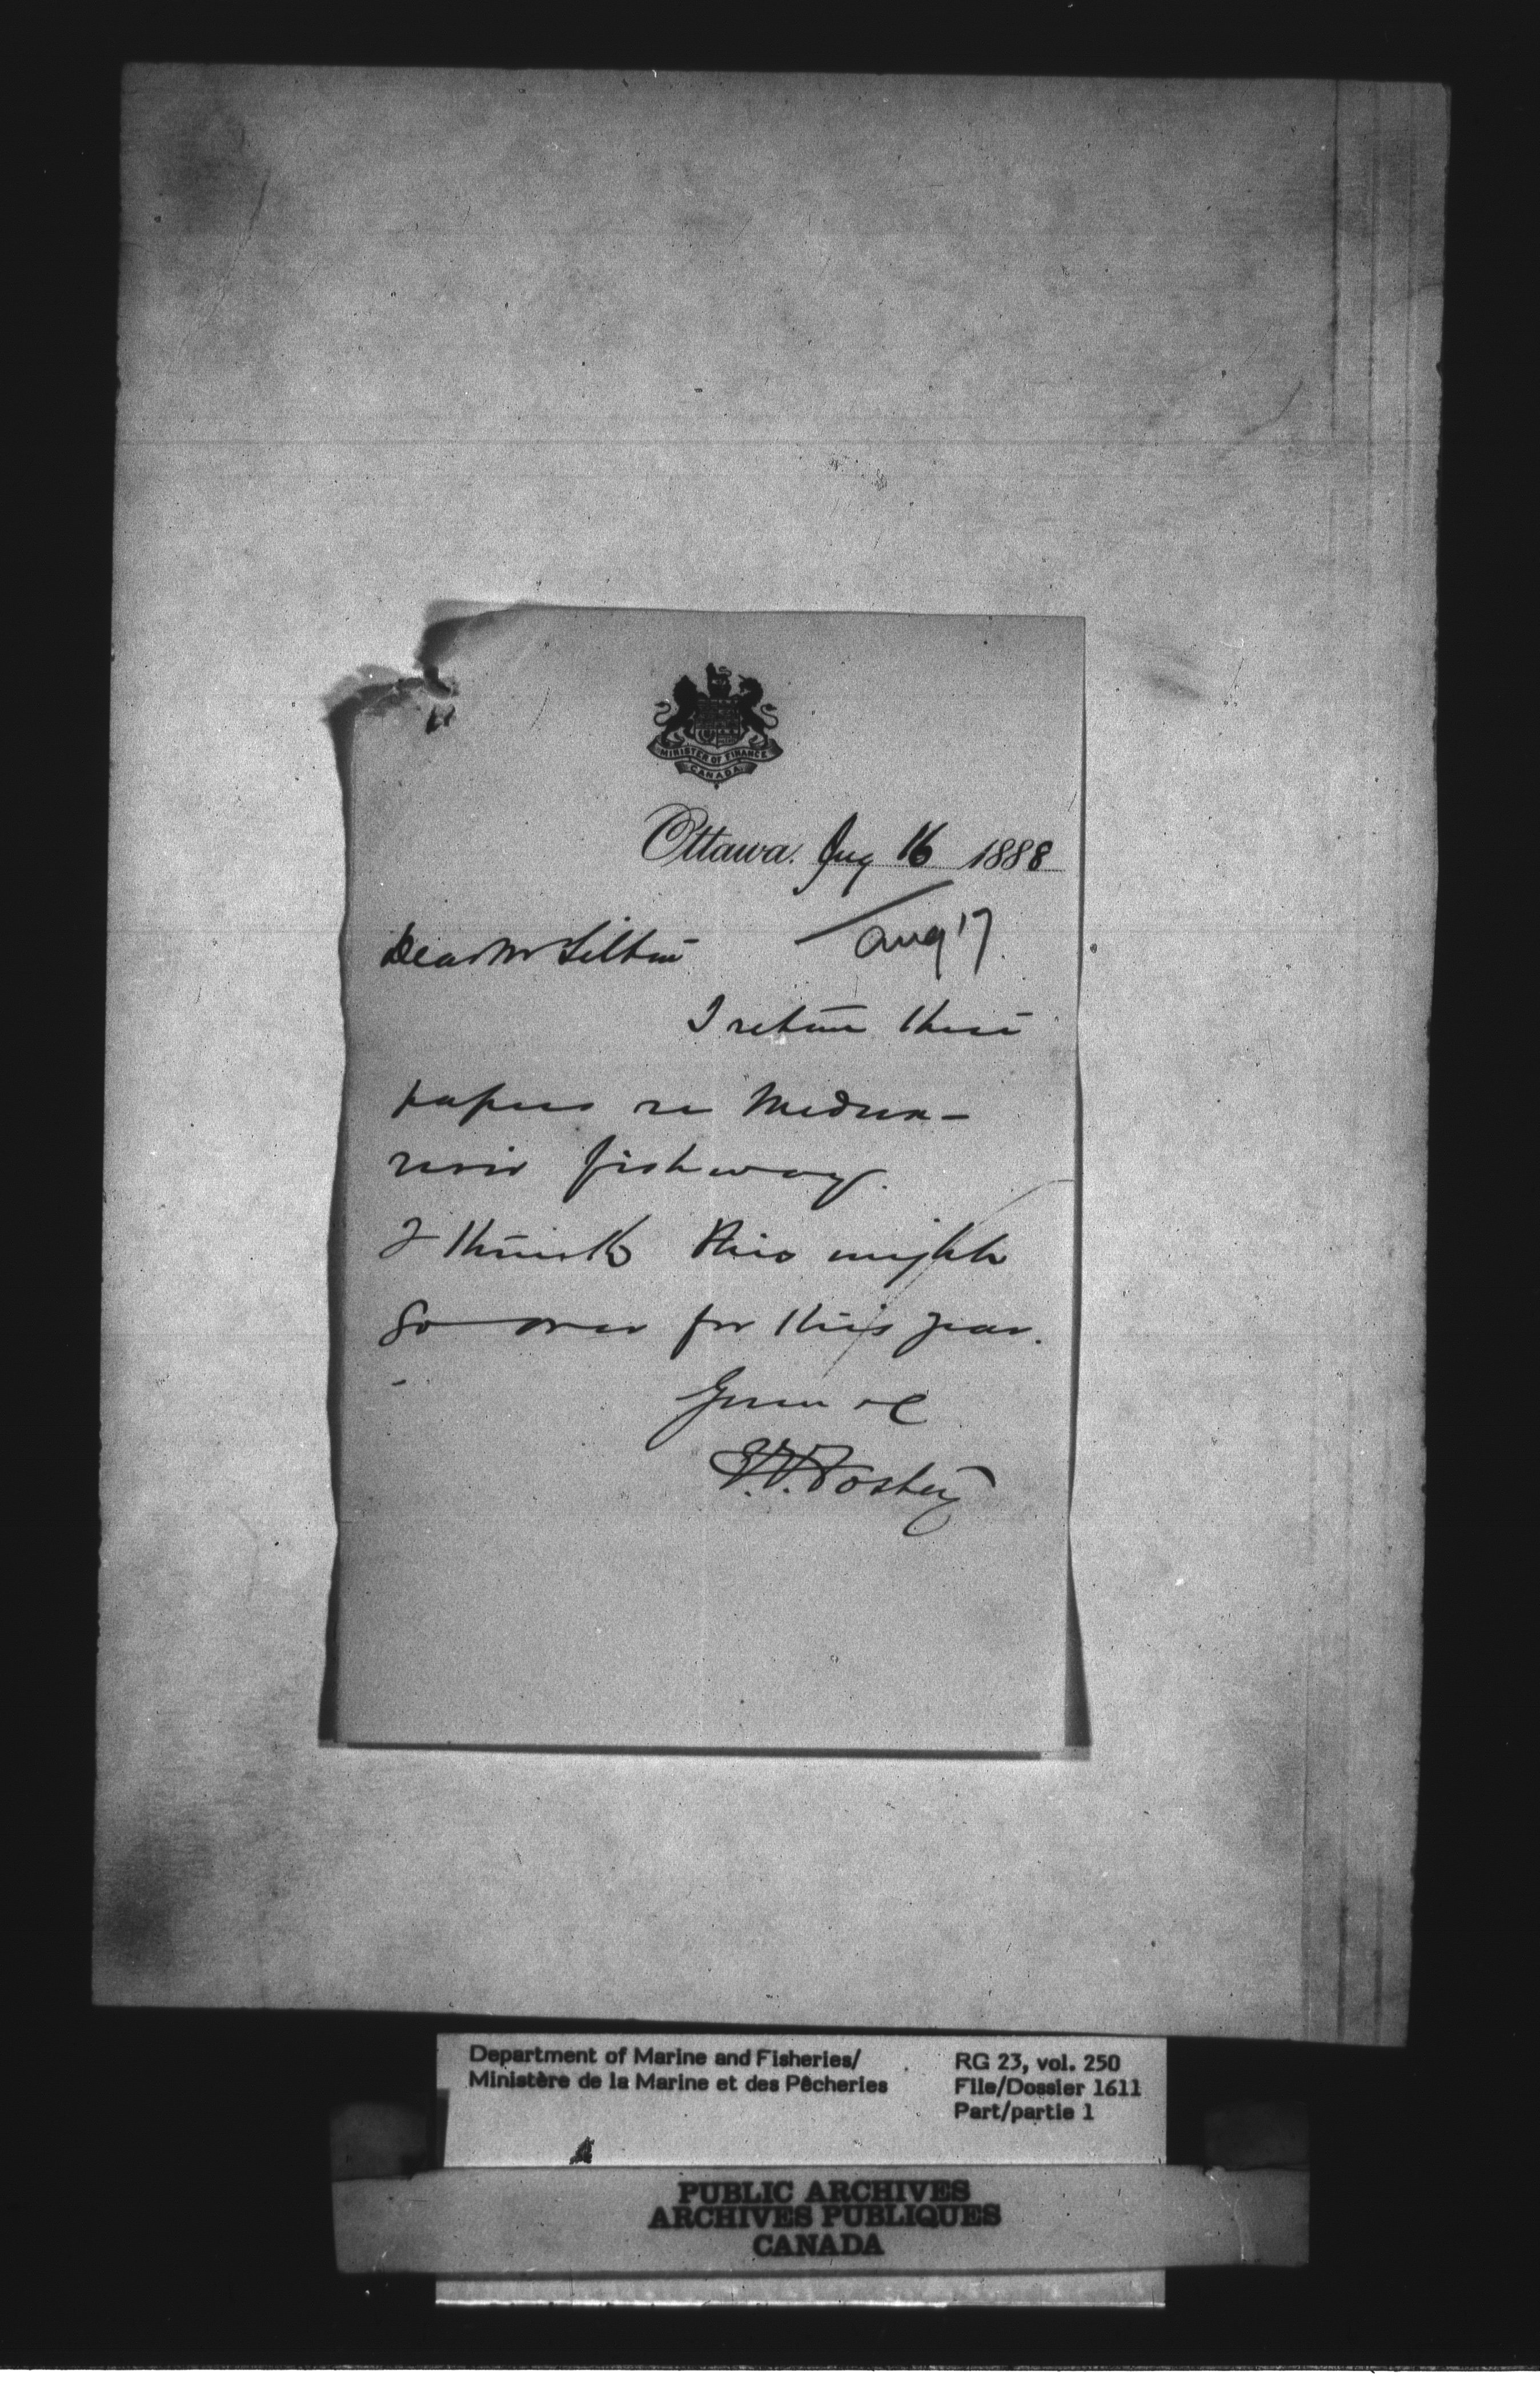 MINISTER OF FINANCE
CANADA
Ottawa. Aug 16 1888
Aug 17
Dear Mr Tilton
I return these
papers re Medux-
nevic fishway.
I think this might
go over for this year.
Yours &c
G.E. Foster
Department of Marine and Fisheries/
Ministère de la Marine et des Pêcheries
RG 23, vol. 250
File/Dossier 1611
Part/partie 1
PUBLIC ARCHIVES
ARCHIVES PUBLIQUES
CANADA